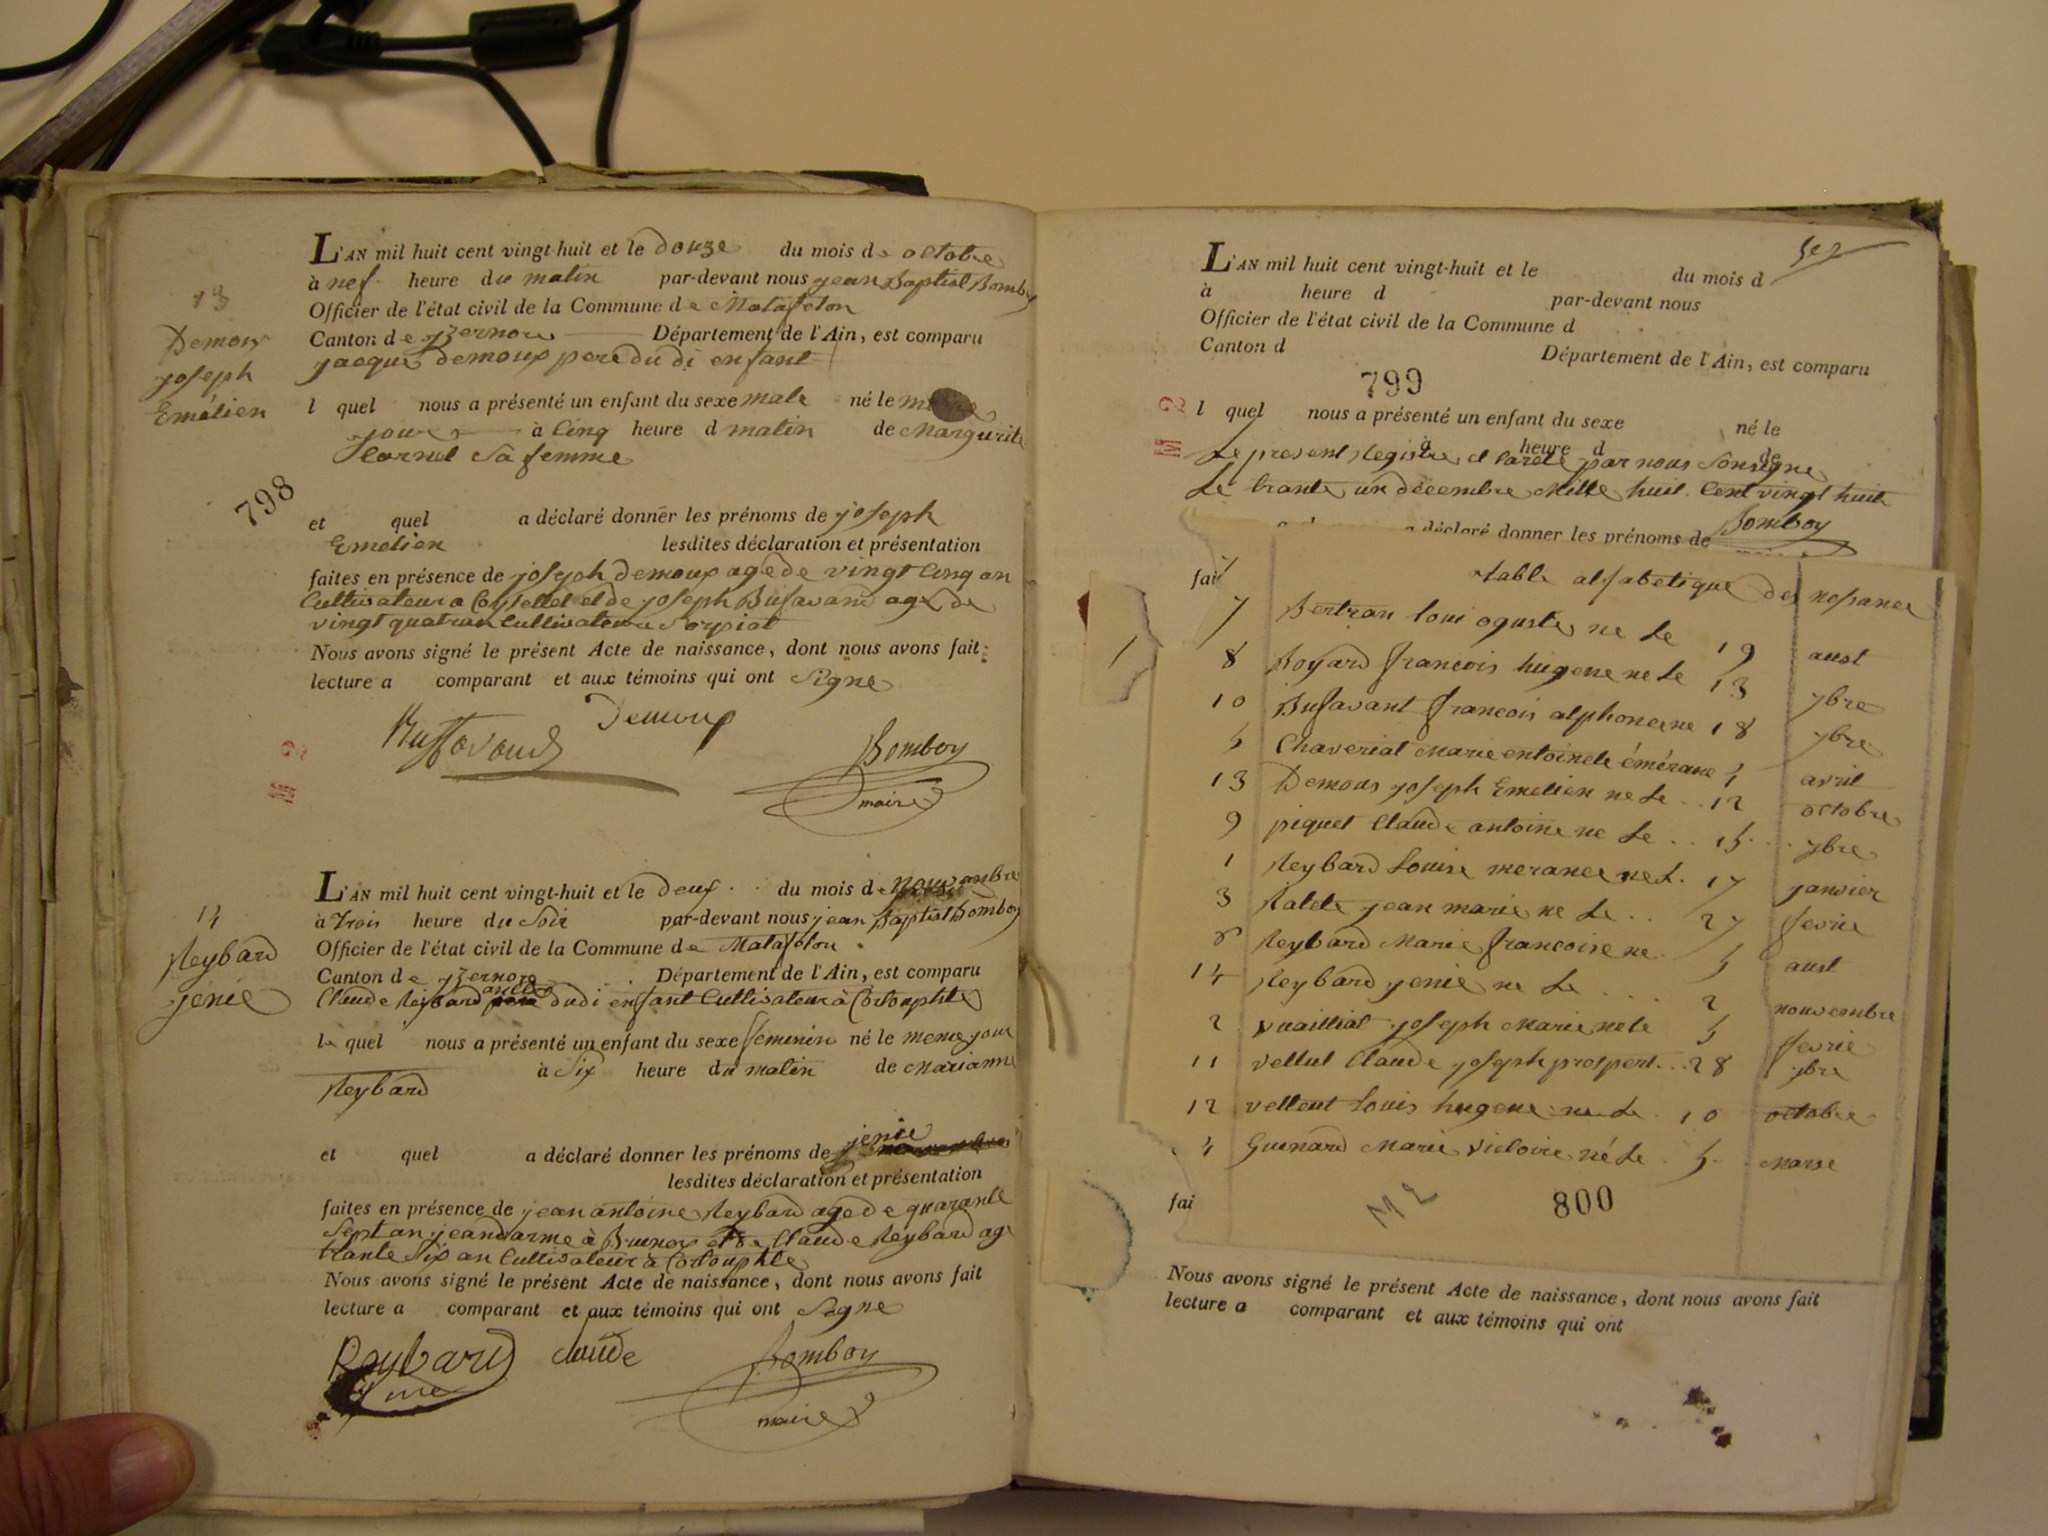 L'AN mil huit cent vingt-huit et le douze du mois de octobre
à nef heure du matin par-devant nous jean Baptist Bomboy
Officier de l'état civil de la Commune de Matafelon
Canton de yzernore Département de l'Ain, est comparu
jacque demoux pere du di enfant
13
Demoux
joseph
Emélien
l quel nous a présenté un enfant du sexe male né le meme
jour à Cinq heure d matin de Margurite
Sa femme
798
et quel a déclaré donner les prénoms de joseph
Emelien lesdites déclaration et présentation
faites en présence de joseph demoux age de vingt Cinq an
Cultivateur a et de joseph Bufavand age de
vingt quatr an Cultivateur a
Nous avons signé le présent Acte de naissance, dont nous avons fait
lecture a comparant et aux témoins qui ont Signe
Demoux
Buffavand
Bomboy
maire
M 2
L'AN mil huit cent vingt-huit et le deux du mois de nouvanbre
à trois heure du Soir par-devant nous jean Baptist Bomboy
Officier de l'état civil de la Commune de Matafelon
Canton de yzernore Département de l'Ain, est comparu
Claude Reybard dudi enfant Cultivateur à
14
Reybard
jenie
le quel nous a présenté un enfant du sexe feminin né le meme jour
à Six heure du matin de Marianne
Reybard
et quel a déclaré donner les prénoms de jenie
lesdites déclaration et présentation
faites en présence de jean antoine Reybard age de quarante
Sept an jeandarme à et de Claude Reybard age
trante Six an Cultivateur à
Nous avons signé le présent Acte de naissance, dont nous avons fait
lecture a comparant et aux témoins qui ont Signe
Reybard Claude Bomboy
maire
L'AN mil huit cent vingt-huit et le du mois d
à heure d par-devant nous
Officier de l'état civil de la Commune d
Canton d Département de l'Ain, est comparu
799
M 2
l quel nous a présenté un enfant du sexe né le
à heure d de
Le present Registre et Bareté par nous Sousigne
Le trante un decembre Mille huit Cent vingt huit
Bomboy
a déclaré donner les prénoms de
fai
table alfabetique des nesance
7 Bertran loui oguste ne Le 19 aust
8 Boyard francois hugene ne Le 13 7bre
10 Bufavant francois alphonce ne 18 7bre
5 Chaveriat Marie entoinete émérane 1 avril
13 Demoux joseph Emelien ne Le 12 octobre
9 piquet Claude antoine ne Le 15 7bre
1 Reybard Louise merance ne L. 17 janvier
3 jean marie ne Le 27 fevrie
6 Reybard Marie francoise ne 5 aust
14 Reybard jenie ne Le 2 nouvembre
2 Vuailliat joseph Marie ne le 5 fevrie
11 Vellut Claude joseph prospert 28 7bre
12 velleut Louis hugene ne Le 10 octobre
4 Guenard Marie Victoire né Le 5 Marse
M 2
800
fai
Nous avons signé le présent Acte de naissance, dont nous avons fait
lecture a comparant et aux témoins qui ont